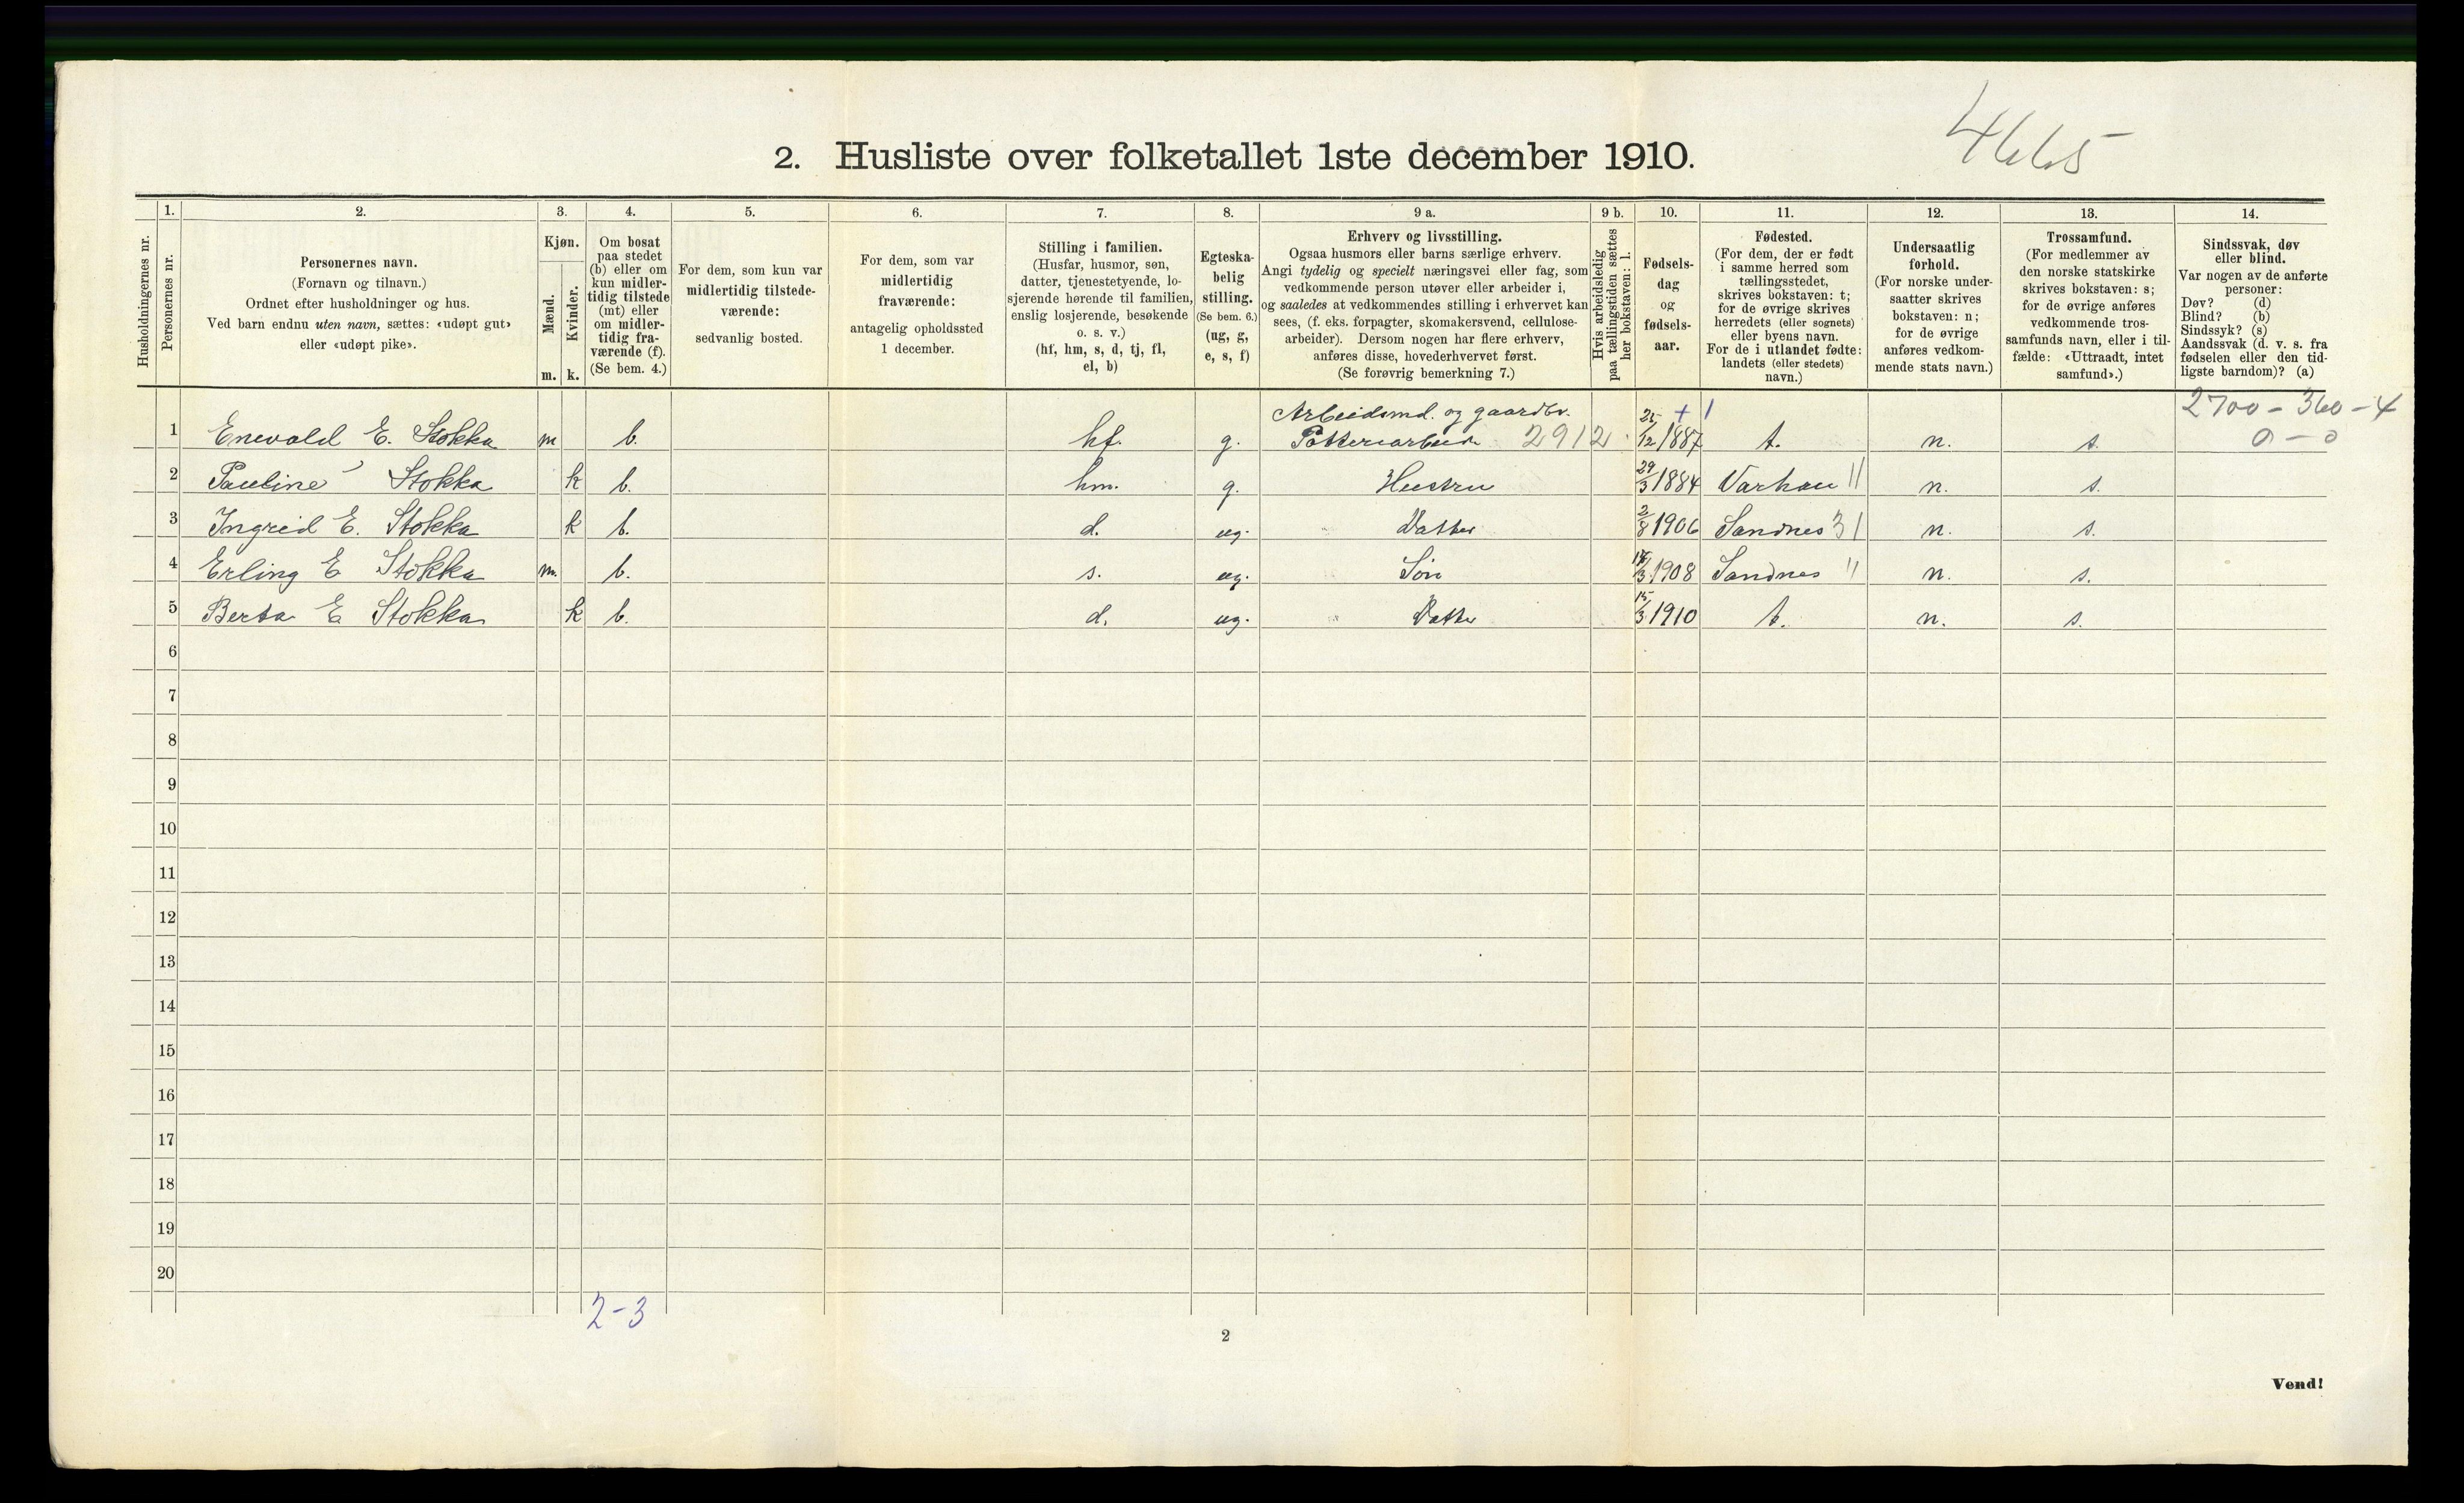 4665
2. Husliste over folketallet 1ste december 1910.
Husholdningernes nr.
1.
Personernes nr.
2.
Personernes navn.
(Fornavn og tilnavn.)
Ordnet efter husholdninger og hus.
Ved barn endnu uten navn, sættes: «udøpt gut»
eller «udøpt pike».
3.
Kjøn.
Mænd.
m.
Kvinder.
k.
4.
Om bosat
paa stedet
(b) eller om
kun midler-
tidig tilstede
(mt) eller
om midler-
tidig fra-
værende (f).
(Se bem. 4.)
5.
For dem, som kun var
midlertidig tilstede-
værende:
sedvanlig bosted.
6.
For dem, som var
midlertidig
fraværende:
antagelig opholdssted
1 december.
7.
Stilling i familien.
(Husfar, husmor, søn,
datter, tjenestetyende, lo-
sjerende hørende til familien,
enslig losjerende, besøkende
o. s. v.)
(hf, hm, s, d, tj, fl,
el, b)
8.
Egteska-
belig
stilling.
(Se bem. 6.)
(ug, g,
e, s, f)
9 a.
Erhverv og livsstilling.
Ogsaa husmors eller barns særlige erhverv.
Angi tydelig og specielt næringsvei eller fag, som
vedkommende person utøver eller arbeider i,
og saaledes at vedkommendes stilling i erhvervet kan
sees, (f. eks. forpagter, skomakersvend, cellulose-
arbeider). Dersom nogen har flere erhverv,
anføres disse, hovederhvervet først.
(Se forøvrig bemerkning 7.)
9 b.
Hvis arbeidsledig
paa tællingstiden sættes
her bokstaven: l.
10.
Fødsels-
dag
og
fødsels-
aar.
11.
Fødested.
(For dem, der er født
i samme herred som
tællingsstedet,
skrives bokstaven: t;
for de øvrige skrives
herredets (eller sognets)
eller byens navn.
For de i utlandet fødte:
landets (eller stedets)
navn.)
12.
Undersaatlig
forhold.
(For norske under-
saatter skrives
bokstaven: n;
for de øvrige
anføres vedkom-
mende stats navn.)
13.
Trossamfund.
(For medlemmer av
den norske statskirke
skrives bokstaven: s;
for de øvrige anføres
vedkommende tros-
samfunds navn, eller i til-
fælde: «Uttraadt, intet
samfund».)
14.
Sindssvak, døv
eller blind.
Var nogen av de anførte
personer:
Døv? (d)
Blind? (b)
Sindssyk? (s)
Aandssvak (d. v. s. fra
fødselen eller den tid-
ligste barndom)? (a)
Arbeidsmd. og gaardbr. + 1 2700 - 360 - 4
1 Enevald E. Stokka m b. hf. g. Potteriarbeid 2912 25/12 1887 t. n. s. 0 - 0
2 Pauline Stokka k b. hm. g. Hustru 29/3 1884 Varhau 11 n. s.
3 Ingrid E. Stokka k b. d. ug. Datter 2/8 1906 Sandnes 31 n. s.
4 Erling E Stokka m. b. s. ug. Søn /3 1908 Sandnes " n. s.
5 Berta E Stokka k b. d. ug. Datter 15/3 1910 t. n. s.
6
7
8
9
10
11
12
13
14
15
16
17
18
19
20
2-3
2
Vend!